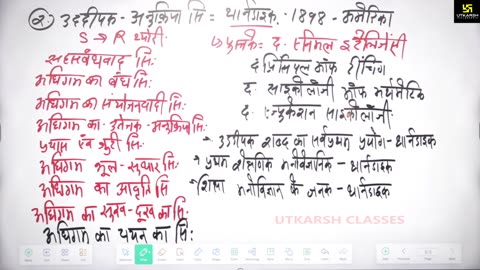 2. उददीपक - अनुक्रिया सि = थार्नडाइक - 1898 - अमेरिका
S → R थ्योरी
↳ पुस्तकें = द - एनिमल इंटेलिजेंसी
सहसंबंधवाद सि:
द प्रिंसिपल ऑफ टीचिंग
अधिगम का बंध सि:
द साइकोलॉजी ऑफ अर्थमेटिक
अधिगम का संयोजनवादी सि:
द एजुकेशन साइकोलॉजी
अधिगम का उत्तेजक - अनुक्रिया सि:
प्रयास एवं त्रुटी सि:
→ उददीपक शब्द का सर्वप्रथम प्रयोग - थार्नडाइक
अधिगम भूल - सुधार सि:
→ प्रथम शैक्षणिक मनोवैज्ञानिक - थार्नडाइक
अधिगम का आवृति सि:
→ शिक्षा मनोविज्ञान के जनक - थार्नडाइक
अधिगम का सुख - दुख का सि:
अधिगम का चयन का सि:
UTKARSH CLASSES
UTKARSH